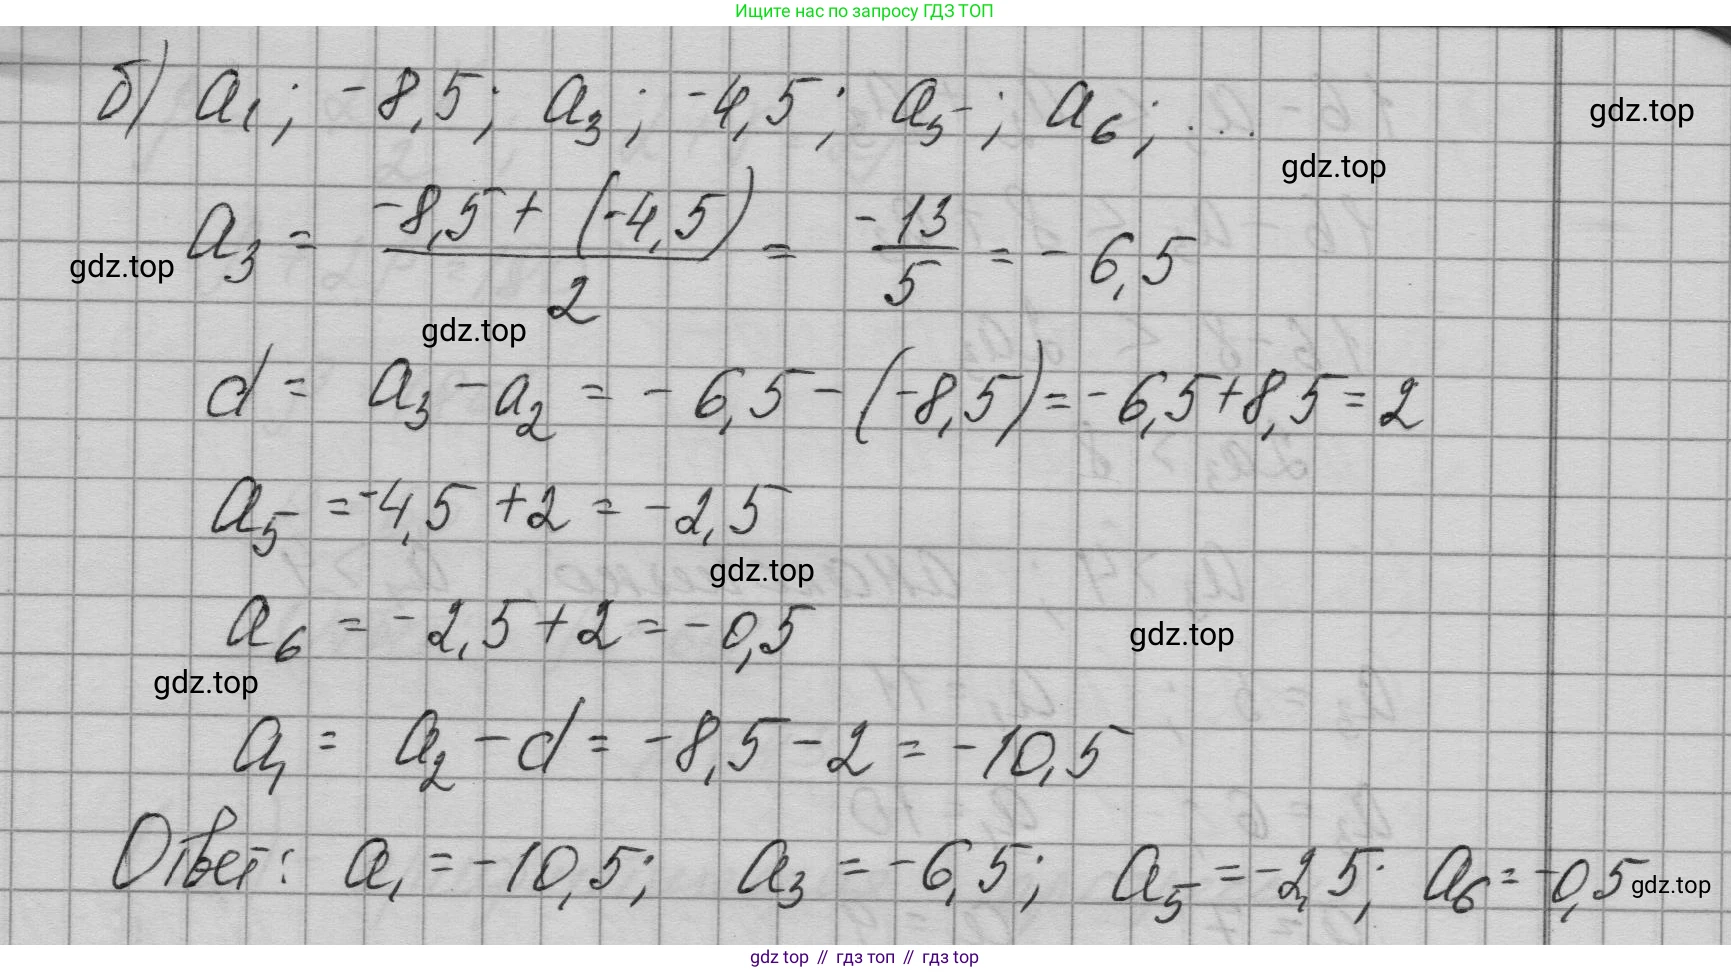 Ищите нас по запросу ГДЗ ТОП
б) a₁; -8,5; a₃; -4,5; a₅; a₆; ...
gdz.top
gdz.top
a₃ = (-8,5 + (-4,5))/2 = -13/5 = -6,5
gdz.top
gdz.top
d = a₃ - a₂ = -6,5 - (-8,5) = -6,5 + 8,5 = 2
a₅ = -4,5 + 2 = -2,5
gdz.top
a₆ = -2,5 + 2 = -0,5
gdz.top
gdz.top
a₁ = a₂ - d = -8,5 - 2 = -10,5
Ответ: a₁ = -10,5; a₃ = -6,5; a₅ = -2,5; a₆ = -0,5
gdz.top
gdz top // гдз топ // гдз top